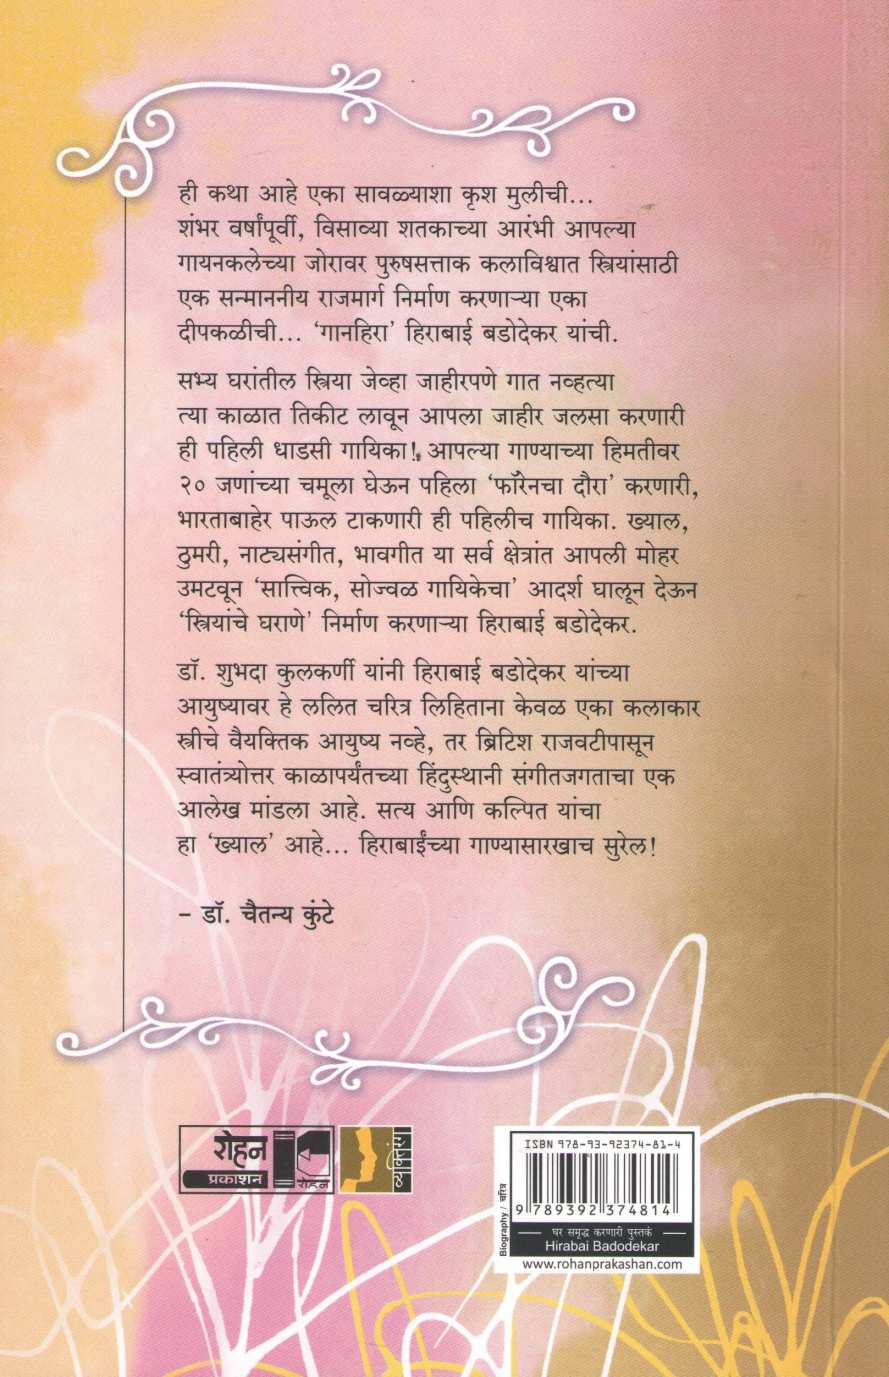 ही कथा आहे एका सावळ्याशा कृश मुलीची...
शंभर वर्षांपूर्वी, विसाव्या शतकाच्या आरंभी आपल्या
गायनकलेच्या जोरावर पुरुषसत्ताक कलाविश्वात स्त्रियांसाठी
एक सन्माननीय राजमार्ग निर्माण करणाऱ्या एका
दीपकळीची... ‘गानहिरा’ हिराबाई बडोदेकर यांची.
सभ्य घरांतील स्त्रिया जेव्हा जाहीरपणे गात नव्हत्या
त्या काळात तिकीट लावून आपला जाहीर जलसा करणारी
ही पहिली धाडसी गायिका! आपल्या गाण्याच्या हिमतीवर
२० जणांच्या चमूला घेऊन पहिला ‘फॉरेनचा दौरा’ करणारी,
भारताबाहेर पाऊल टाकणारी ही पहिलीच गायिका. ख्याल,
ठुमरी, नाट्यसंगीत, भावगीत या सर्व क्षेत्रांत आपली मोहर
उमटवून ‘सात्त्विक, सोज्वळ गायिकेचा’ आदर्श घालून देऊन
‘स्त्रियांचे घराणे’ निर्माण करणाऱ्या हिराबाई बडोदेकर.
डॉ. शुभदा कुलकर्णी यांनी हिराबाई बडोदेकर यांच्या
आयुष्यावर हे ललित चरित्र लिहिताना केवळ एका कलाकार
स्त्रीचे वैयक्तिक आयुष्य नव्हे, तर ब्रिटिश राजवटीपासून
स्वातंत्र्योत्तर काळापर्यंतच्या हिंदुस्थानी संगीतजगताचा एक
आलेख मांडला आहे. सत्य आणि कल्पित यांचा
हा ‘ख्याल’ आहे... हिराबाईंच्या गाण्यासारखाच सुरेल!
– डॉ. चैतन्य कुंटे
रोहन
प्रकाशन
रोहन
व्यक्तिरंग
ISBN 978-93-92374-81-4
9 789392 374814
Biography / चरित्र
घर समृद्ध करणारी पुस्तकं
Hirabai Badodekar
www.rohanprakashan.com